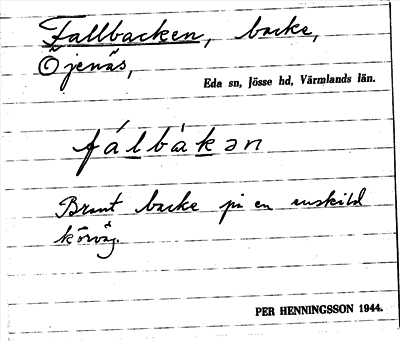 Fallbacken, backe,
Öjenäs,
Eda sn, Jösse hd, Värmlands län.
fálbàkən
Brant backe på en enskild
körväg.
PER HENNINGSSON 1944.